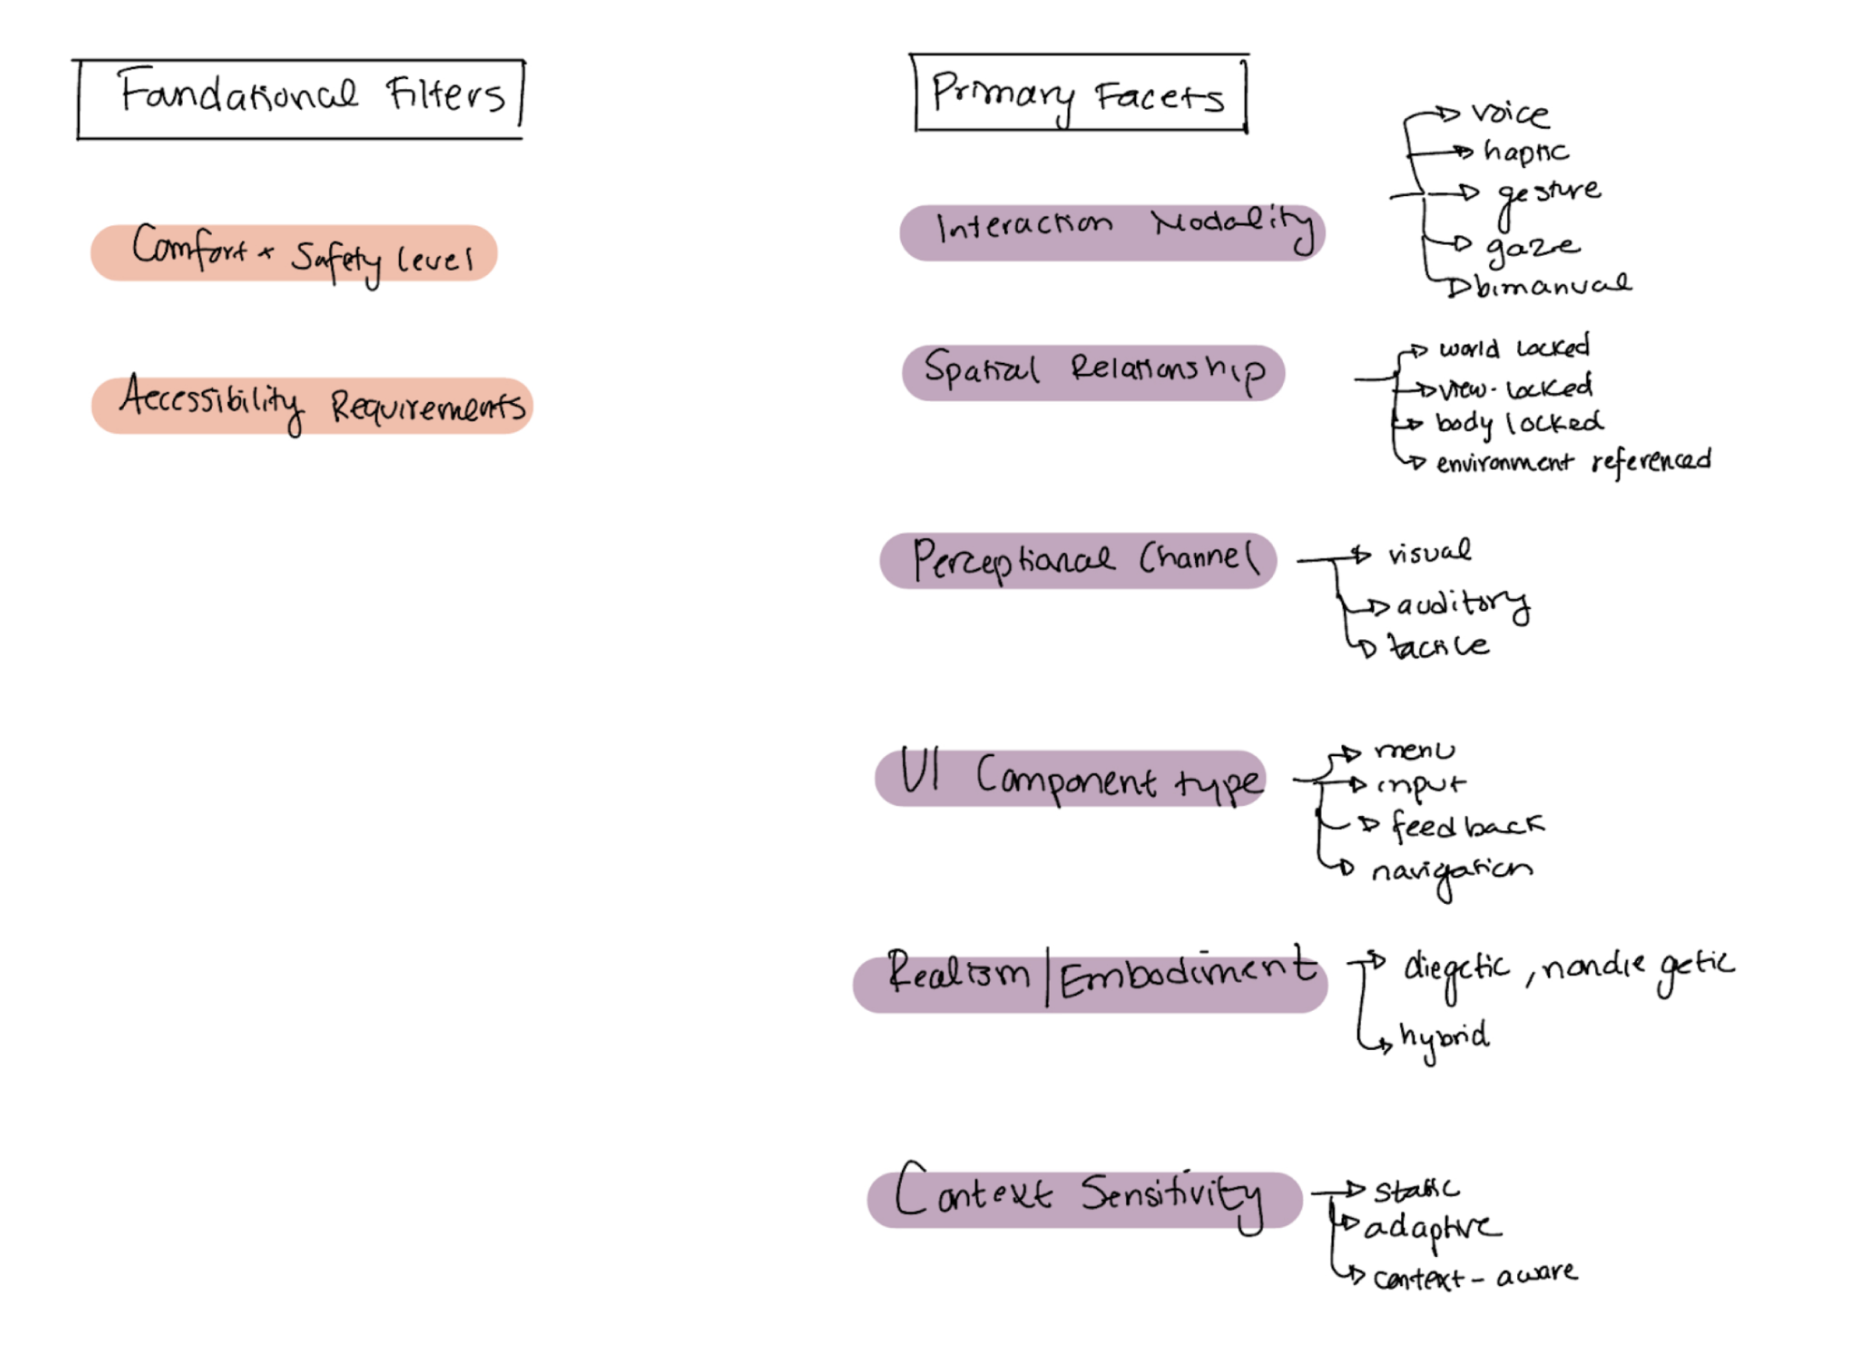 Fandational Filters
Comfort + Safety level
Accessibility Requirements
Primary Facets
Interaction Modality
voice
haptic
gesture
gaze
bimanual
Spatial Relationship
world locked
view-locked
body locked
environment referenced
Perceptional Channel
visual
auditory
tactile
UI Component type
menu
input
feedback
navigation
Realism | Embodiment
diegetic, nondiegetic
hybrid
Context Sensitivity
static
adaptive
context-aware